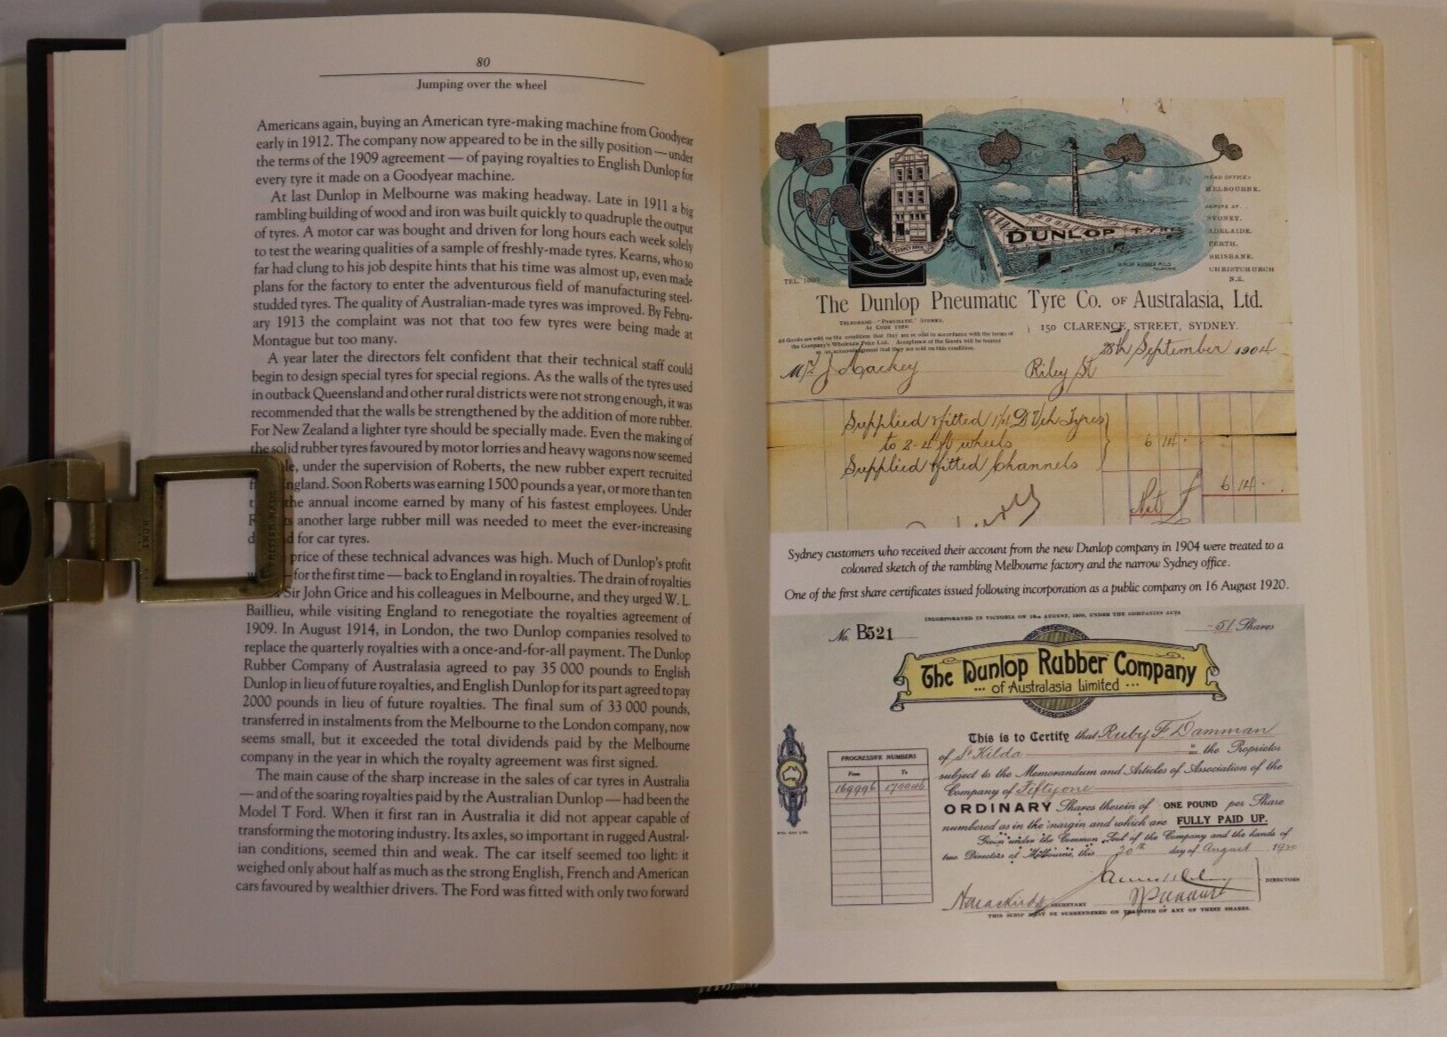 80
Jumping over the wheel
Americans again, buying an American tyre-making machine from Goodyear
early in 1912. The company now appeared to be in the silly position — under
the terms of the 1909 agreement — of paying royalties to English Dunlop for
every tyre it made on a Goodyear machine.
At last Dunlop in Melbourne was making headway. Late in 1911 a big
rambling building of wood and iron was built quickly to quadruple the output
of tyres. A motor car was bought and driven for long hours each week solely
to test the wearing qualities of a sample of freshly-made tyres. Kearns, who so
far had clung to his job despite hints that his time was almost up, even made
plans for the factory to enter the adventurous field of manufacturing steel-
studded tyres. The quality of Australian-made tyres was improved. By Febru-
ary 1913 the complaint was not that too few tyres were being made at
Montague but too many.
A year later the directors felt confident that their technical staff could
begin to design special tyres for special regions. As the walls of the tyres used
in outback Queensland and other rural districts were not strong enough, it was
recommended that the walls be strengthened by the addition of more rubber.
For New Zealand a lighter tyre should be specially made. Even the making of
the solid rubber tyres favoured by motor lorries and heavy wagons now seemed
under the supervision of Roberts, the new rubber expert recruited
England. Soon Roberts was earning 1500 pounds a year, or more than ten
the annual income earned by many of his fastest employees. Under
another large rubber mill was needed to meet the ever-increasing
for car tyres.
price of these technical advances was high. Much of Dunlop's profit
— for the first time — back to England in royalties. The drain of royalties
Sir John Grice and his colleagues in Melbourne, and they urged W. L.
Baillieu, while visiting England to renegotiate the royalties agreement of
1909. In August 1914, in London, the two Dunlop companies resolved to
replace the quarterly royalties with a once-and-for-all payment. The Dunlop
Rubber Company of Australasia agreed to pay 35 000 pounds to English
Dunlop in lieu of future royalties, and English Dunlop for its part agreed to pay
2000 pounds in lieu of future royalties. The final sum of 33 000 pounds,
transferred in instalments from the Melbourne to the London company, now
seems small, but it exceeded the total dividends paid by the Melbourne
company in the year in which the royalty agreement was first signed.
The main cause of the sharp increase in the sales of car tyres in Australia
— and of the soaring royalties paid by the Australian Dunlop — had been the
Model T Ford. When it first ran in Australia it did not appear capable of
transforming the motoring industry. Its axles, so important in rugged Austral-
ian conditions, seemed thin and weak. The car itself seemed too light: it
weighed only about half as much as the strong English, French and American
cars favoured by wealthier drivers. The Ford was fitted with only two forward
HEAD OFFICE:
MELBOURNE.
SYDNEY.
ADELAIDE.
PERTH.
BRISBANE.
CHRISTCHURCH
N.Z.
DUNLOP TYRE
TEL.
The Dunlop Pneumatic Tyre Co. OF Australasia, Ltd.
150 CLARENCE STREET, SYDNEY.
28th September 1904
Mr J Mackey Riley St
Supplied & fitted
Tyres
to 2- wheels
6 14
Supplied fitted Channels
6 14
Sydney customers who received their account from the new Dunlop company in 1904 were treated to a
coloured sketch of the rambling Melbourne factory and the narrow Sydney office.
One of the first share certificates issued following incorporation as a public company on 16 August 1920.
INCORPORATED IN VICTORIA ON 16TH AUGUST, 1920, UNDER THE COMPANIES ACTS
No. B521
51 Shares
The Dunlop Rubber Company
of Australasia Limited
This is to Certify that Ruby F Damman
of St Kilda is the Proprietor
subject to the Memorandum and Articles of Association of the
Company of Fifty one
ORDINARY Shares therein of ONE POUND per Share
numbered as in the margin and which are FULLY PAID UP.
Given under the Common Seal of the Company and the hands of
two Directors at Melbourne, this 20th day of August 1920
PROGRESSIVE NUMBERS
From To
169996 170046
DIRECTORS
SECRETARY
THIS SCRIP MUST BE SURRENDERED ON TRANSFER OF ANY OF THESE SHARES.